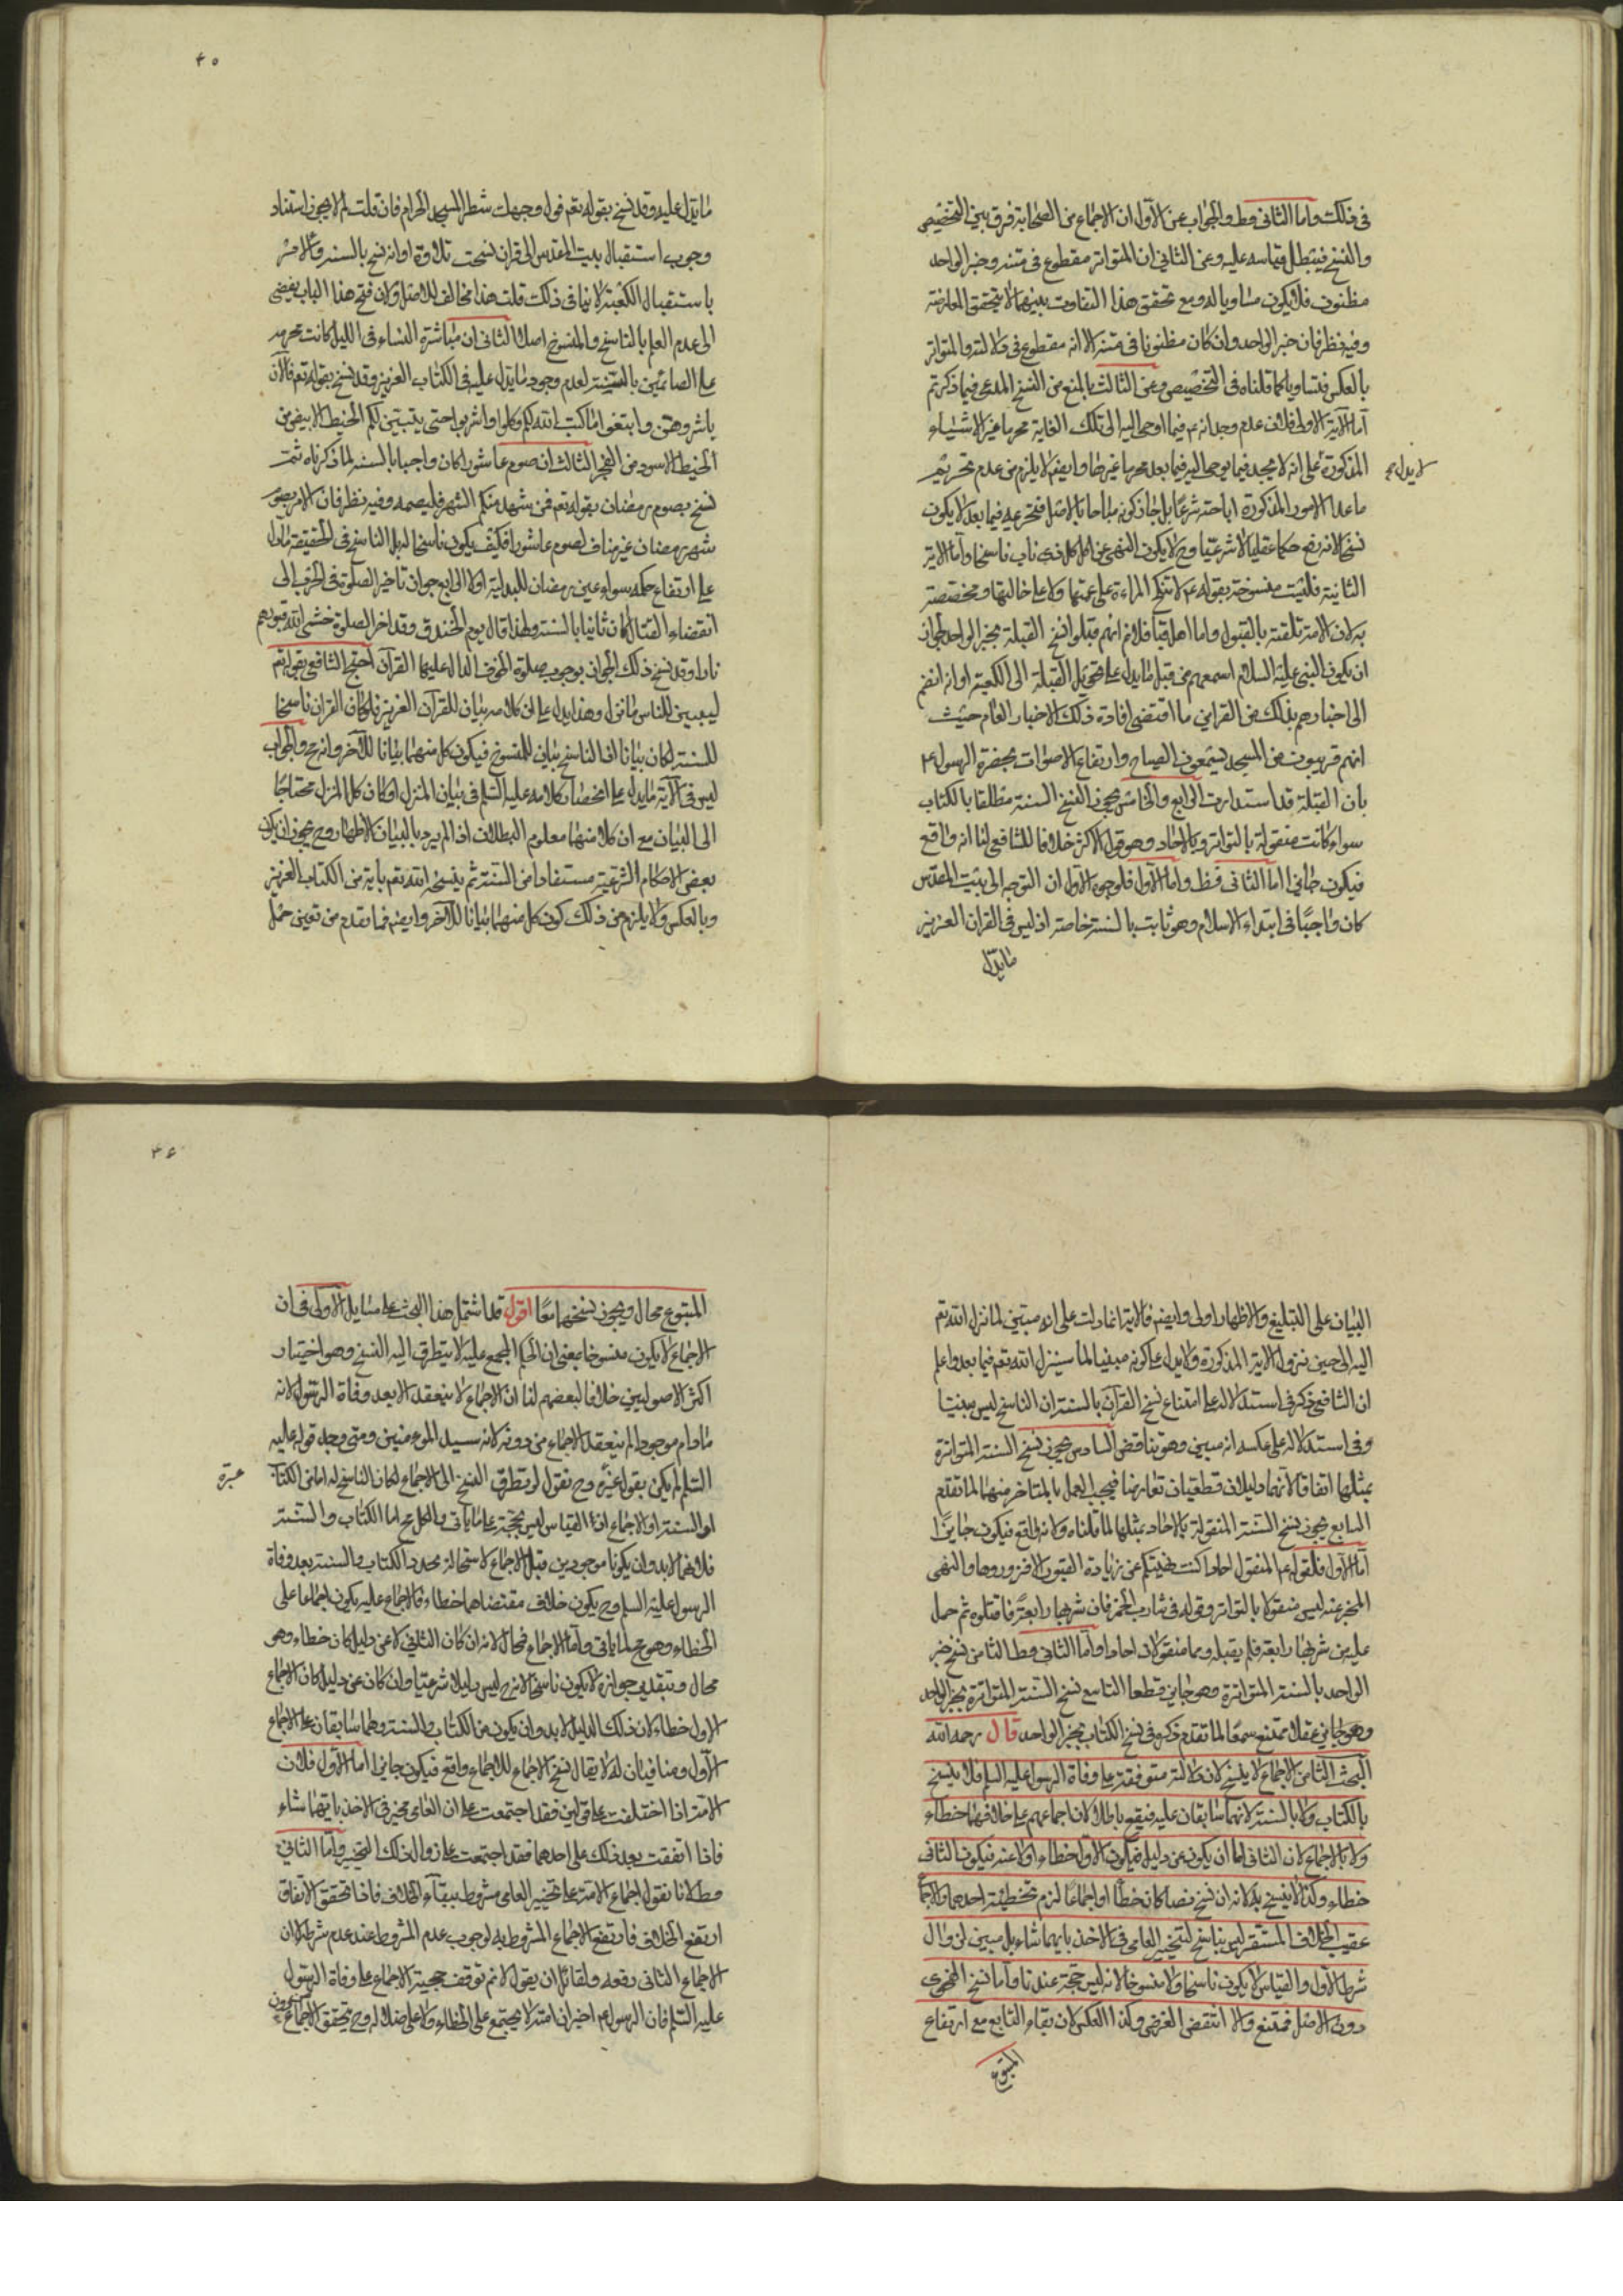 في ذلك واما الثاني فظ والجواب عن الاول ان الاجماع من الصحابة فرق بين التخصيص
والنسخ فيبطل قياسه عليه وعن الثاني ان المتواتر مقطوع في متنه وخبر الواحد
مظنون فلا يكون مساويا له ومع تحقق هذا التفاوت بينهما لا يتحقق المعارضة
وفيه نظر فان خبر الواحد وان كان مظنونا في متنه الا انه مقطوع في دلالته والمتواتر
بالعكس فتساويا كما قلناه في التخصيص وعن الثالث بالمنع من النسخ المدعى فيما ذكرتم
اما الآية الاولى فلان عدم وجدانه ع فيما اوحى اليه الى تلك الغاية محرما غير الاشياء
المذكورة على انه لا يجد فيما يوحى اليه فيما بعد محرما غيرها وايضم لا يلزم من عدم تحريم
لا يدل
ما عدا الامور المذكورة اباحته شرعا بل جاز كونه مباحا بالاصل فتحريمه فيما بعد لا يكون
نسخا لانه رفع حكما عقليا لا شرعيا وح لا يكون النهى عن اكل كل ذى ناب ناسخا واما الآية
الثانية فليست منسوخة بقوله ع لا تنكح المراءة على عمتها ولا على خالتها ومخصصة
به لان الامة تلقته بالقبول واما اهل قبا فلا نم انهم قبلوا نسخ القبلة بخبر الواحد لجواز
ان يكون النبى عليه السلام اسمعهم من قبل ما يدل على تحويل القبلة الى الكعبة او انه انضم
الى اخبارهم بذلك من القراين ما اقتضى افادة ذلك الاخبار العلم حيث
انهم قريبون من المسجد يسمعون الصياح وارتفاع الاصوات بحضرة الرسول ع
بان القبلة قد استدارت الى الرابع والخامس يجوز نسخ السنة مطلقا بالكتاب
سواء كانت منقولة بالتواتر وبالاحاد وهو قول الاكثر خلافا للشافعى لنا انه واقع
فيكون جائزا اما الثاني فظ واما الاول فلوجوه الاول ان التوجه الى بيت المقدس
كان واجبا فى ابتداء الاسلام وهو ثابت بالسنة خاصة اذ ليس في القران العزيز
ما يدل
٤٥
ما يدل عليه وقد نسخ بقوله تعم فول وجهك شطر المسجد الحرام فان قلت لم لا يجوز استناد
وجوب استقبال بيت المقدس الى قران نسخت تلاوة او انه نسخ بالسنة والامر
باستقبال الكعبة لا ينافى ذلك قلت هذا مخالف للاصل ولان فتح هذا الباب يفضى
الى عدم العلم بالناسخ والمنسوخ اصلا الثانى ان مباشرة النساء فى الليل كانت محرمه
على الصائمين بالسنة لعدم وجود ما يدل عليه فى الكتاب العزيز وقد نسخ بقوله تعم فالآن
باشروهن وابتغوا ما كتب الله لكم وكلوا واشربوا حتى يتبين لكم الخيط الابيض من
الخيط الاسود من الفجر الثالث ان صوم عاشورا كان واجبا بالسنة لما ذكرناه ثمت
نسخ بصوم رمضان بقوله تعم فمن شهد منكم الشهر فليصمه وفيه نظر فان الامر بصوم
شهر رمضان غير مناف لصوم عاشورا فكيف يكون ناسخا له بل الناسخ فى الحقيقة ما دل
على ارتفاع حكمه سواء عين رمضان للبدلية اولا الرابع جواز تاخير الصلوة فى الحرب الى
انقضاء القتال كان ثابتا بالسنة ولهذا قال يوم الخندق وقد اخر الصلوة حشى الله قبورهم
نارا وقد نسخ ذلك الجواز بوجوب صلوة الخوف الدال عليها القرآن احتج الشافعى بقوله تعم
ليبين للناس ما نزل وهذا يدل على ان كلامه بيان للقرآن العزيز فلو كان القران ناسخا
للسنة لكان بيانا اذ الناسخ بيان للمنسوخ فيكون كل منهما بيانا للآخر وانه مح والجواب
ليس فى الآية ما يدل على انحصار كلامه عليه السلم فى بيان المنزل او كان كل المنزل محتاجا
الى البيان مع ان كلا منهما معلوم البطلان اذا لم يرد بالبيان الاظهار وح يجوز ان يكون
بعض الاحكام الشرعية مستفادا من السنة ثم ينسخه الله تعم باية من الكتاب العزيز
وبالعكس ولا يلزم من ذلك كون كل منهما بيانا للآخر وايضم فما تقدم من تعين حمل
البيان على التبليغ والاظهار اولى وايضم فالاية انما دلت على انه مبين لما نزل الله تعم
اليه الى حين نزول الاية المذكورة ولا يدل على كونه مبينا لما سينزل الله تعم فيما بعد واعلم
ان الشافعى ذكر فى استدلاله على امتناع نسخ القرآن بالسنة ان الناسخ ليس مبينا
وفى استدلاله على عكسه انه مبين وهو يناقض السادس يجوز نسخ السنة المتواترة
بمثلها اتفاقا لانهما دليلان قطعيان تعارضا فيجب العمل بالمتاخر منهما لما تقدم
السابع يجوز نسخ السنة المنقولة بالاحاد بمثلها لما قلناه ولانه واقع فيكون جايزا
اما الاول فلقوله ع المنقول احادا كنت نهيتكم عن زيادة القبور الا فزوروها والنهى
المخبر عنه ليس منقولا بالتواتر وقوله فى شارب الخمر فان شربها رابعة فاقتلوه ثم حمل
عليه من شربها رابعة فلم يقتله وهما منقولان احادا واما الثانى فظ الثامن نسخ خبر
الواحد بالسنة المتواترة وهو جايز قطعا التاسع نسخ السنة المتواترة بخبر الواحد
وهو جايز عقلا ممتنع سمعا لما تقدم ذكره فى نسخ الكتاب بخبر الواحد قال رحمه الله
البحث الثامن الاجماع لا ينسخ لان دلالته متوقفة على وفاة الرسول عليه السلم فلا ينسخ
بالكتاب ولا بالسنة لانهما سابقان عليه فيقع باطلا لان اجماعهم على خلافهما خطاء
ولا بالاجماع لان الثانى اما ان يكون عن دليل فيكون الاول خطاء اولا عنه فيكون الثانى
خطاء وكذا لا ينسخ به لانه ان نسخ نصا كان خطأ او اجماعا لزم تخطيئة احدهما والاجماع
عقيب الخلاف المستقر ليس بناسخ لتخيير العامى فى الاخذ بايهما شاء بل مبين لزوال
شرط الاول والقياس لا يكون ناسخا ولا منسوخا لانه ليس حجة عندنا واما نسخ الفحوى
دون الاصل فممتنع والا انتقض الغرض وكذا العكس لان بقاء التابع مع ارتفاع
المتبوع
٤٦
المتبوع محال ويجوز نسخهما معا اقول قد اشتمل هذا البحث على مسايل الاولى فى ان
الاجماع لا يكون منسوخا بمعنى ان الحكم المجمع عليه لا يتطرق اليه النسخ وهو اختيار
اكثر الاصوليين خلافا لبعضهم لنا ان الاجماع لا ينعقد الا بعد وفاة الرسول لانه
مادام موجودا لم ينعقد الاجماع من دونه لانه سيد المؤمنين ومتى وجد قوله عليه
السلم لم يكن بقول غيره وح نقول لو تطرق النسخ الى الاجماع لكان الناسخ له اما من الكتاب
عبرة
او السنة او الاجماع اذ القياس ليس بحجة على ما ياتى والكل مح اما الكتاب والسنة
فلانهما لابد وان يكونا موجودين قبل الاجماع لاستحالة تجدد الكتاب والسنة بعد وفاة
الرسول عليه السلم وح يكون خلاف مقتضاهما خطاء فالاجماع عليه يكون اجماعا على
الخطاء وهو مح لما ياتى واما الاجماع فمحال لانه ان كان الثانى لا عن دليل كان خطاء وهو
محال وبتقدير جوازه لا يكون ناسخا لانه ح ليس دليلا شرعيا وان كان عن دليل كان الاجماع
الاول خطاء لان ذلك الدليل لابد وان يكون من الكتاب والسنة وهما سابقان على الاجماع
الاول ومنافيان له لا يقال نسخ الاجماع للاجماع واقع فيكون جايزا اما الاول فلان
الامة اذا اختلفت على قولين فقد اجتمعت على ان العامى مخير فى الاخذ بايهما شاء
فاذا اتفقت بعد ذلك على احدهما فقد اجتمعت على زوال ذلك التخيير واما الثانى
فظ لانا نقول اجماع الامة على تخيير العامى مشروط ببقاء الخلاف فاذا تحقق الاتفاق
ارتفع الخلاف فارتفع الاجماع المشروط به لوجوب عدم المشروط عند عدم شرطه لا ان
الاجماع الثانى رفعه ولقائل ان يقول لا نم توقف حجية الاجماع على وفاة الرسول
عليه السلم فان الرسول ع اخبر ان امته لا يجتمع على الخطاء ولا على ضلاله وح يتحقق الاجماع